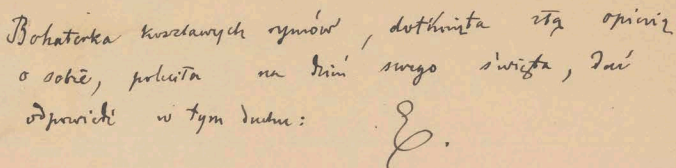 Bohaterka koszlawych rymów, dotknięta złą opinią
o sobie, poleciła na dzień swego święta, dać
odpowiedź w tym duchu: E.